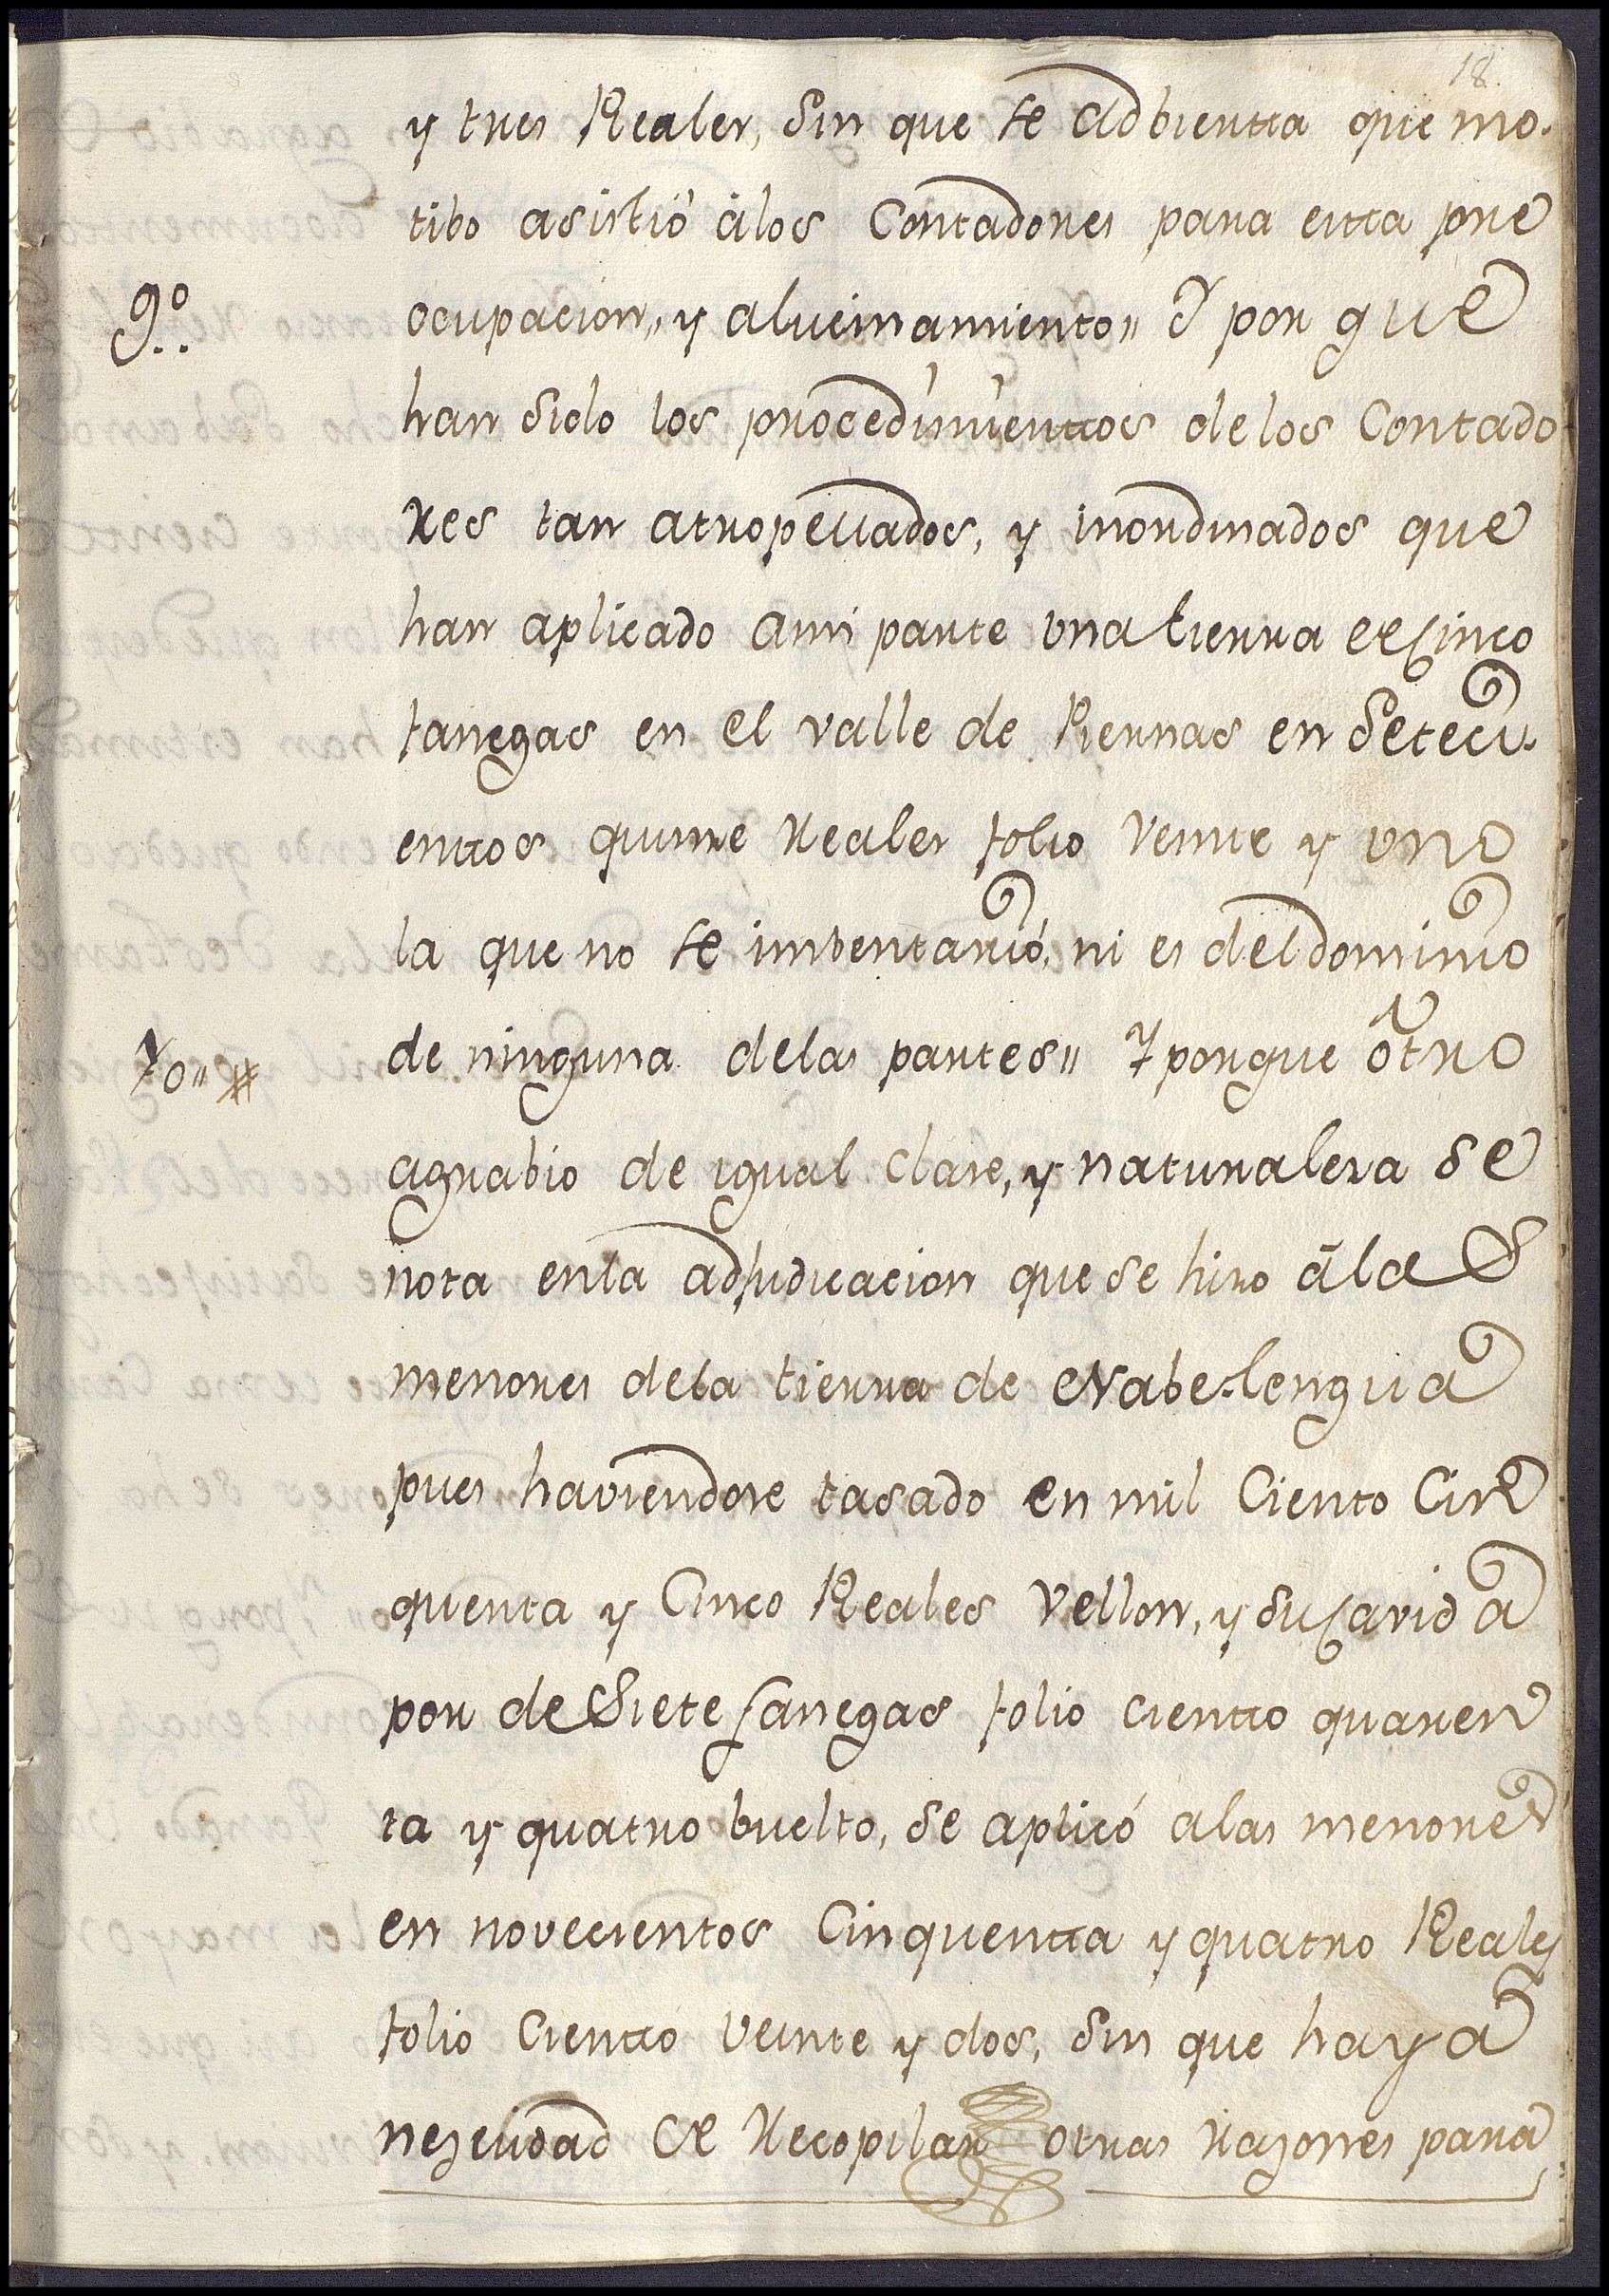 18.
y tres Reales, sin que se adbierta que mo-
tibo asistió álos Contadores para esta pre
9º
ocupacion,, y alucinamiento,, Y por que
han sido los procedimientos delos Contado
res tan atropellados, y inordinados que
han aplicado ami parte una tierra de Cinco
fanegas en el valle de Piernas en Seteci-
entos quinze reales folio Veinte y uno
la que no se imbentarió, ni es del dominio
10,, #
de ninguna delas partes,, Y porque ótro
agrabio de igual clase, y naturaleza se
nota enla adjudicacion que se hizo álas
menores dela tierra de Nabe-lengua
pues haviendose tasado en mil Ciento Cin
quenta y Cinco Reales Vellon, y su Cavida
por de Siete fanegas folio ciento quaren
ta y quatro buelto, se aplicó alas menores
en novecientos Cinquenta y quatro Reales
folio Ciento veinte y dos, sin que haya
nezesidad de Recopilar otras razones para